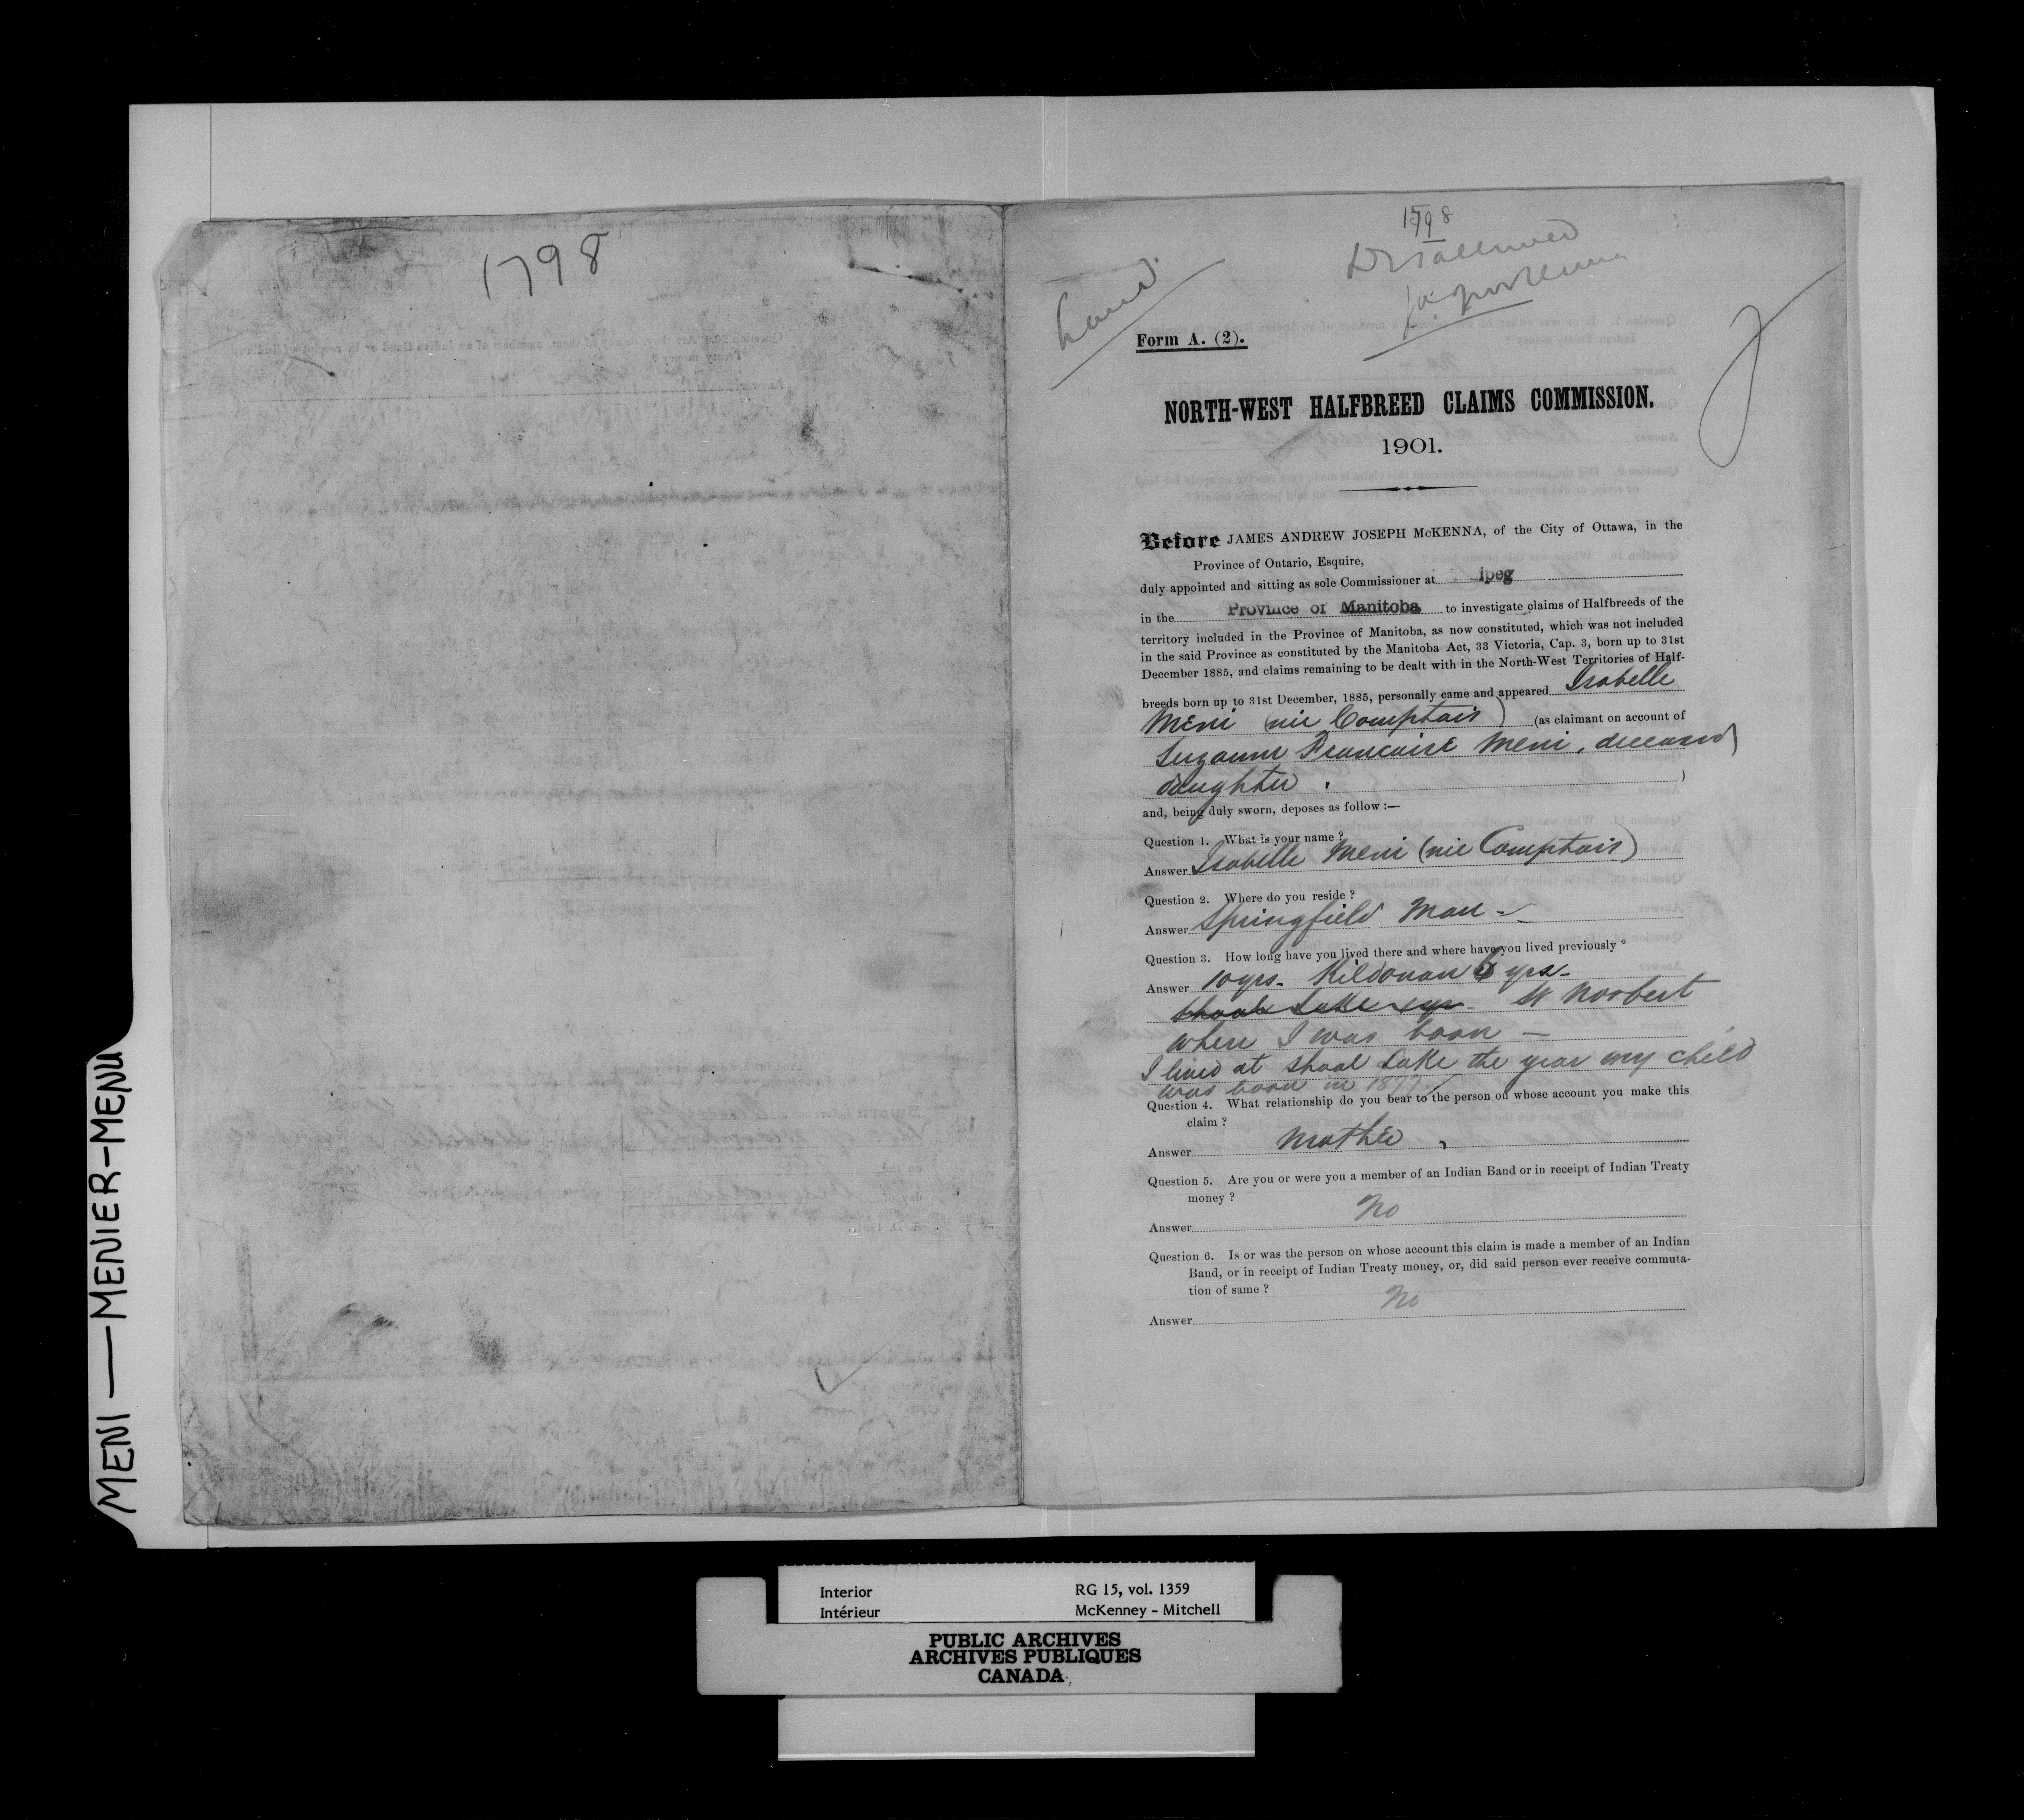 1798
1798
Land
Disallowed
Form A. (2).
NORTH-WEST HALFBREED CLAIMS COMMISSION.
1901.
Before JAMES ANDREW JOSEPH McKENNA, of the City of Ottawa, in the
Province of Ontario, Esquire,
duly appointed and sitting as sole Commissioner at ipeg
in the Province of Manitoba to investigate claims of Halfbreeds of the
territory included in the Province of Manitoba, as now constituted, which was not included
in the said Province as constituted by the Manitoba Act, 33 Victoria, Cap. 3, born up to 31st
December 1885, and claims remaining to be dealt with in the North-West Territories of Half-
breeds born up to 31st December, 1885, personally came and appeared Isabelle
Meni (nie Comptois) (as claimant on account of
Suzanne Francoise Meni, deceased
daughter. )
and, being duly sworn, deposes as follow :—
Question 1. What is your name ?
Answer Isabelle Meni (nie Comptois)
Question 2. Where do you reside ?
Answer Springfield Man -
Question 3. How long have you lived there and where have you lived previously ?
Answer 10 yrs. Kildonan 6 yrs-
Shoal Lake St Norbert
where I was born —
I lived at Shoal Lake the year my child
was born in 1877.
Question 4. What relationship do you bear to the person on whose account you make this
claim ?
Answer Mother,
Question 5. Are you or were you a member of an Indian Band or in receipt of Indian Treaty
money ?
Answer No
Question 6. Is or was the person on whose account this claim is made a member of an Indian
Band, or in receipt of Indian Treaty money, or, did said person ever receive commuta-
tion of same ?
Answer No
MENI — MENIER-MENU
Interior RG 15, vol. 1359
Intérieur McKenney - Mitchell
PUBLIC ARCHIVES
ARCHIVES PUBLIQUES
CANADA